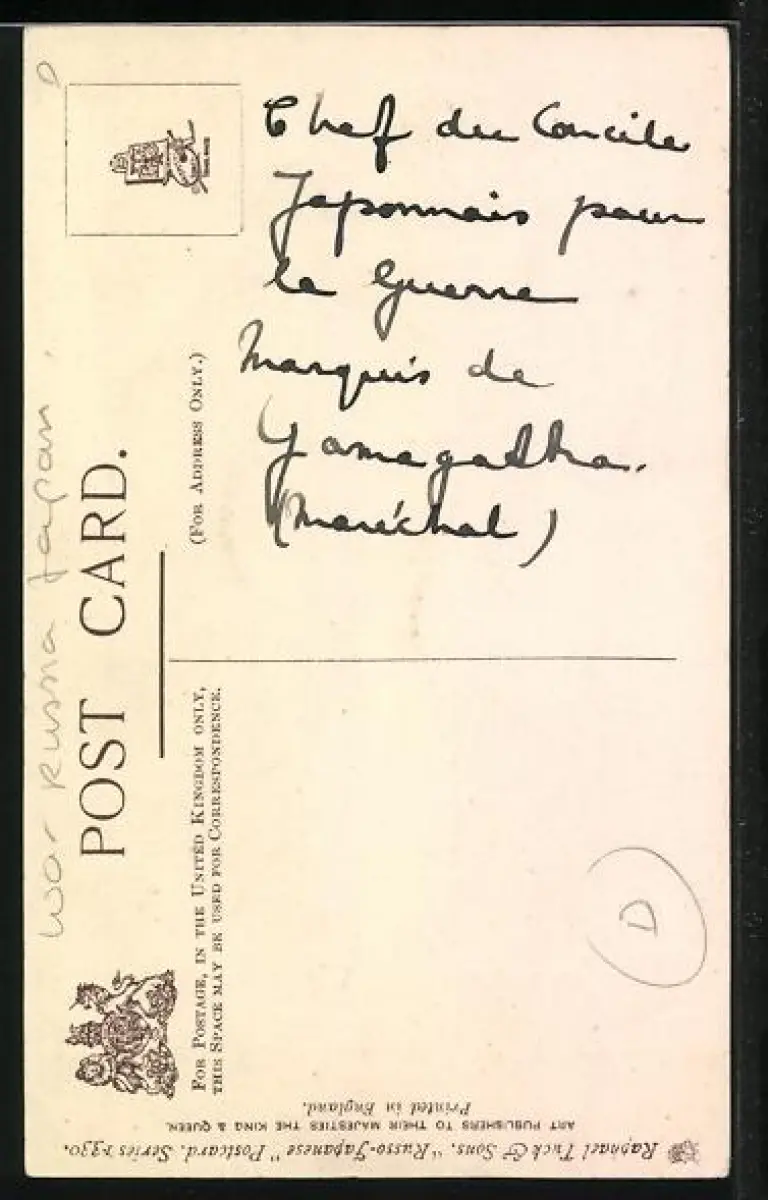 Chef du Concile
Japonnais pour
la Guerre
Marquis de
Yamagatha.
(Maréchal)
War Russia Japan
POST CARD.
(FOR ADDRESS ONLY.)
FOR POSTAGE, IN THE UNITED KINGDOM ONLY,
THIS SPACE MAY BE USED FOR CORRESPONDENCE.
D
Raphael Tuck & Sons' "Russo-Japanese" Postcard. Series 1330.
ART PUBLISHERS TO THEIR MAJESTIES THE KING & QUEEN.
Printed in England.